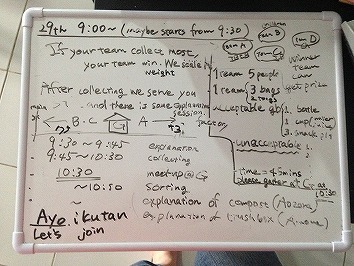 29th 9:00~ (maybe starts from 9:30)
If your team collect most
your team win. We scale
weight
After collecting we serve you
and there is some explanation
session.
← B.C G A →
children
Team A
Team B
Team C
Team D
winner
team
can
get prize
1 team 5 people
1 team 3 bags
2 tongs
acceptable
1. bottle
2. cup
3. snack
unacceptable
1.
2.
time = 45 mins
please gather at G at
10:30
9:30 ~ 9:45 explanation
9:45 ~ 10:30 collecting
10:30 meetup @ G
~ 10:50 sorring
explanation of compost (Aozora)
explanation of trushbox
Ayo ikutan
Let's join